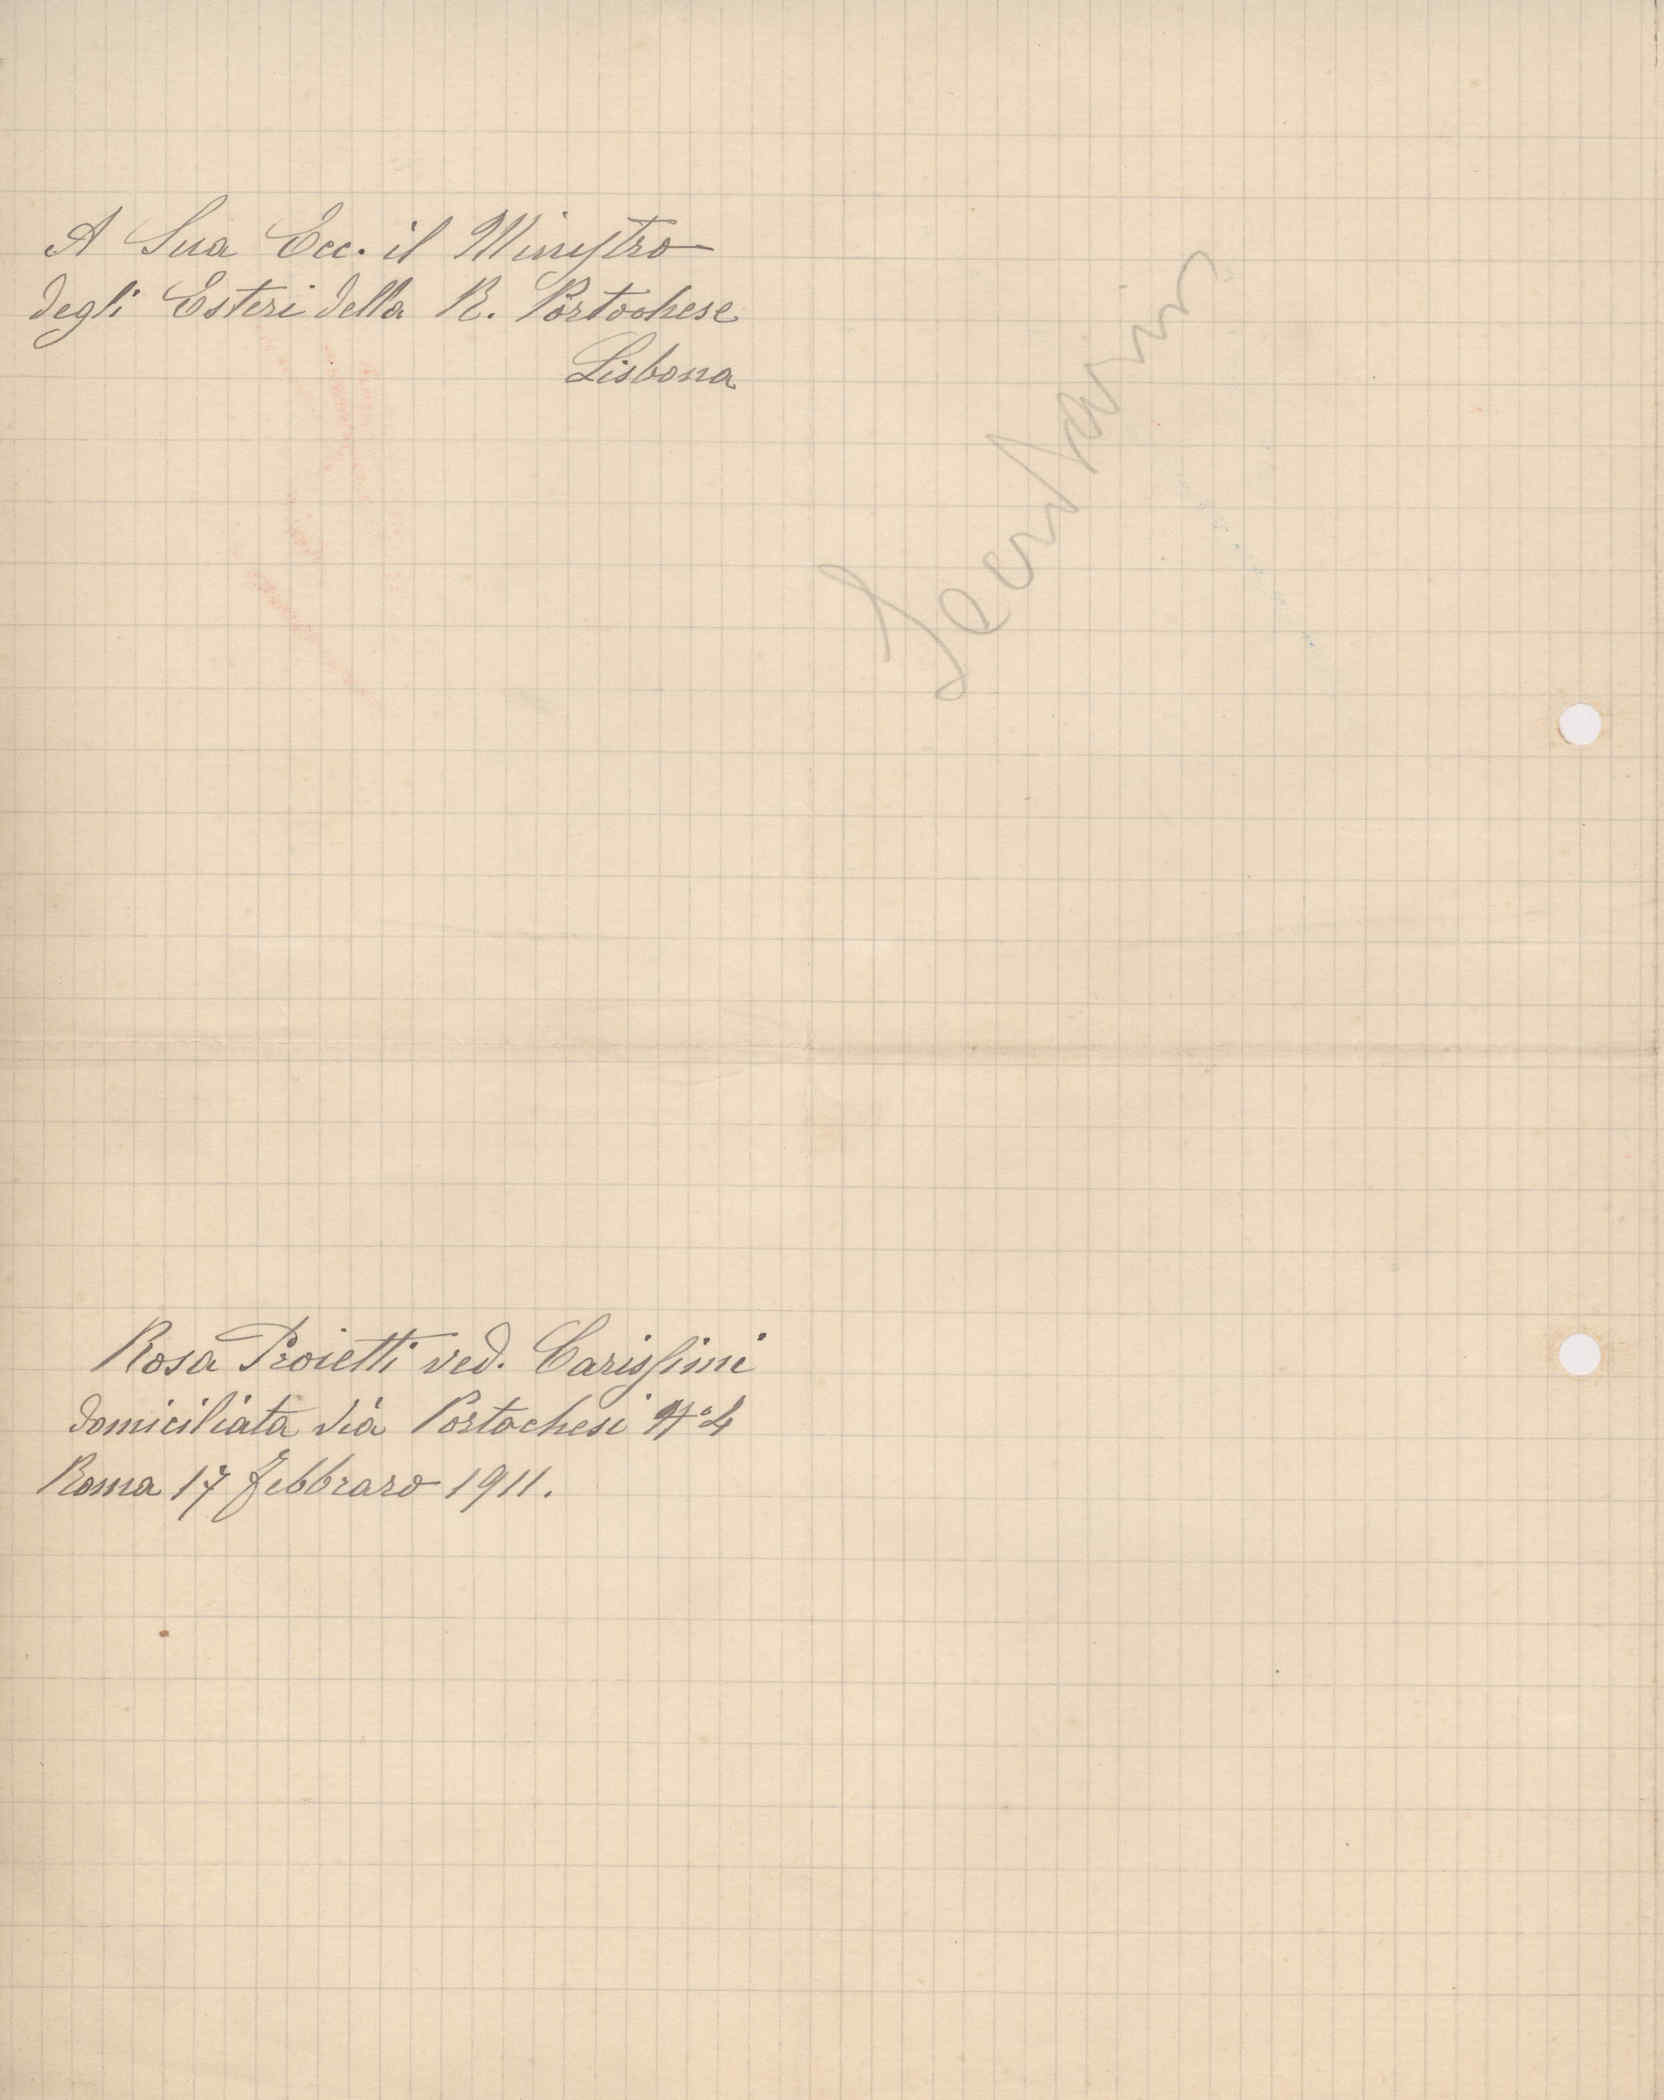 A Sua Ecc. il Minystro
degli Esteri della R. Portochese
Lisbona
Rosa Proietti ved. Carissimi
domiciliata via Portochesi N° 4
Roma 17 febbraro 1911.